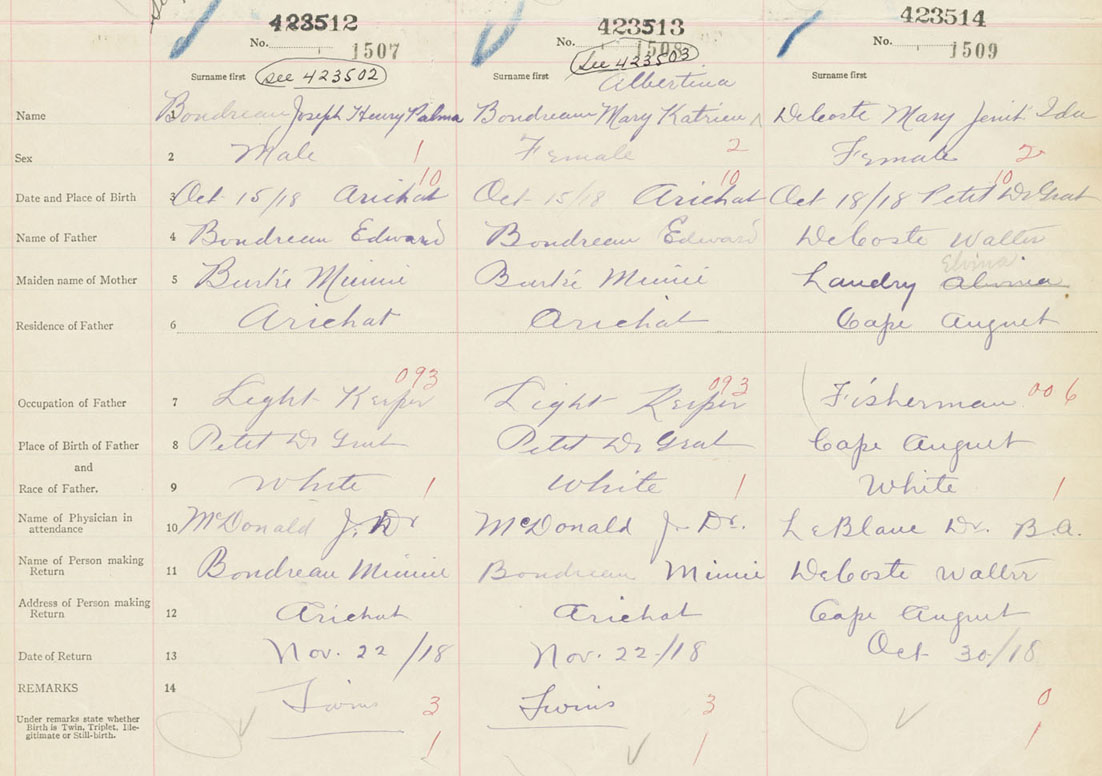 423512 423513 423514
No. 1507 No. 1508 No. 1509
Surname first see 423502 Surname first see 423503 Surname first
Albertina
Name 1 Bondreau Joseph Henry Palma Bondreau Mary Katrien ^ DeCoste Mary Jenit Ida
Sex 2 Male 1 Female 2 Female 2
10 10 10
Date and Place of Birth 3 Oct 15/18 Arichat Oct 15/18 Arichat Oct 18/18 Petit Dr Grat
Name of Father 4 Bondreau Edward Bondreau Edward DeCoste Walter
Elvina
Maiden name of Mother 5 Burke Minnie Burke Minnie Landry Alvina
Residence of Father 6 Arichat Arichat Cape August
093 093
Occupation of Father 7 Light Keeper Light Keeper Fisherman 006
Place of Birth of Father 8 Petit Dr Grat Petit Dr Grat Cape August
and
Race of Father. 9 White 1 White 1 White 1
Name of Physician in
attendance 10 McDonald J. Dr McDonald J. Dr. LeBlanc Dr. B.A.
Name of Person making
Return 11 Bondreau Minnie Bondreau Minnie DeCoste Walter
Address of Person making
Return 12 Arichat Arichat Cape August
Date of Return 13 Nov. 22/18 Nov. 22/18 Oct 30/18
REMARKS 14 Twins 3 Twins 3 0
Under remarks state whether
Birth is Twin, Triplet, Ille-
gitimate or Still-birth. 1 1 1